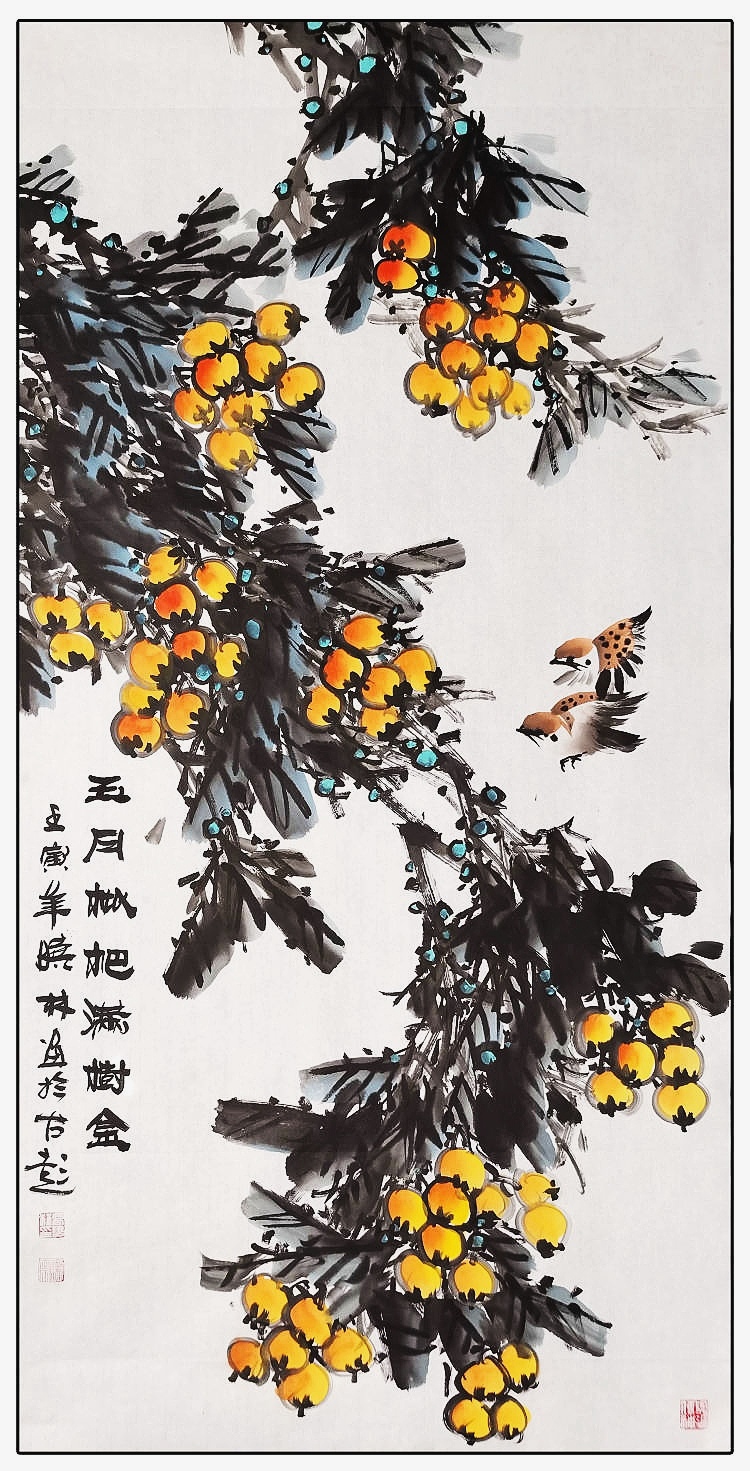 五月枇杷满樹金
壬寅年曉林画於古彭